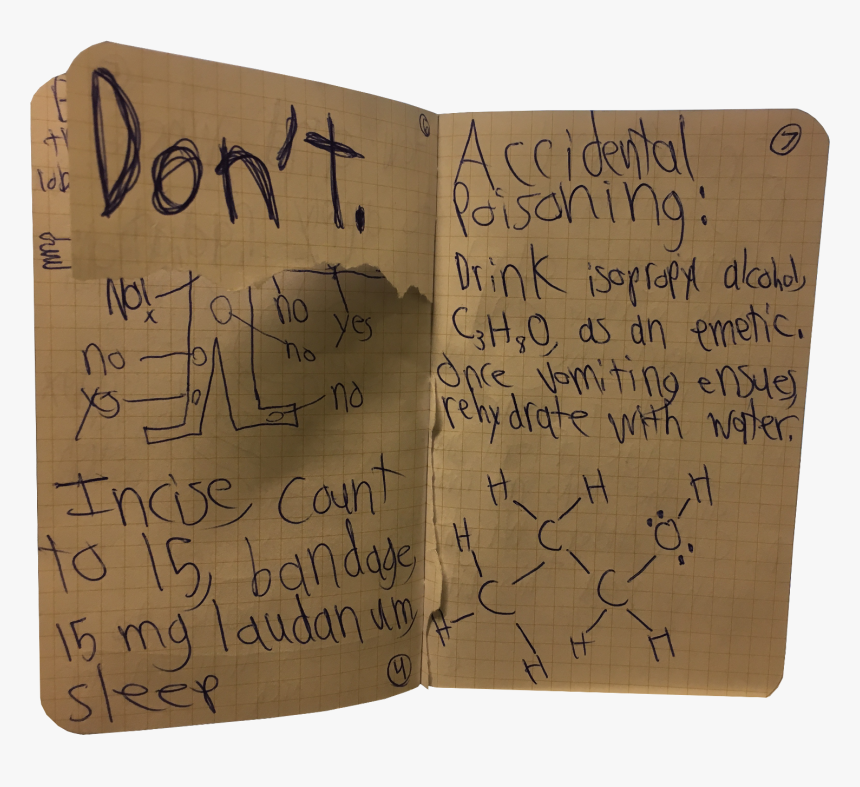 Don't.
6
No!
x
no
yes
no
no
yes
no
Incise, Count
to 15, bandage,
15 mg laudanum,
sleep
4
7
Accidental
Poisoning:
Drink isopropyl alcohol,
C₃H₈O, as an emetic.
Once vomiting ensues,
rehydrate with water.
H H H
H C O
C C
H H H
H